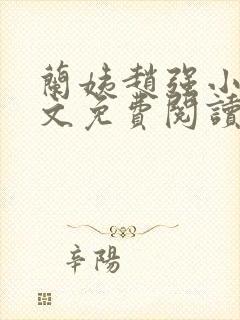 蘭姨趙强小
文免費閱讀
辛陽